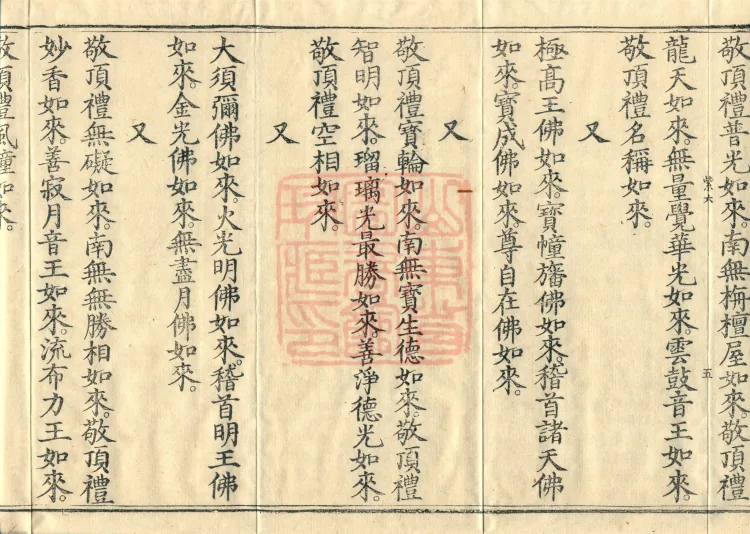 敬頂禮普光如來。南無栴檀屋如來。敬
紫六
五
龍天如來。無量覺華光如來。雲鼓音王如來。
敬頂禮名稱如來。
又
極高王佛如來。寶幢旛佛如來。稽首諸天佛
如來。寶成佛如來。尊自在佛如來。
又
敬頂禮寶輪如來。南無寶生德如來。敬頂禮
智明如來。瑠璃光最勝如來。善淨德光如來。
敬頂禮空相如來。
又
大須彌佛如來。火光明佛如來。稽首明王佛
如來。金光佛如來。無盡月佛如來。
又
敬頂禮無礙如來。南無無勝相如來。敬頂禮
妙香如來。善寂月音王如來。流布力王如來。
敬頂禮風幢如來。